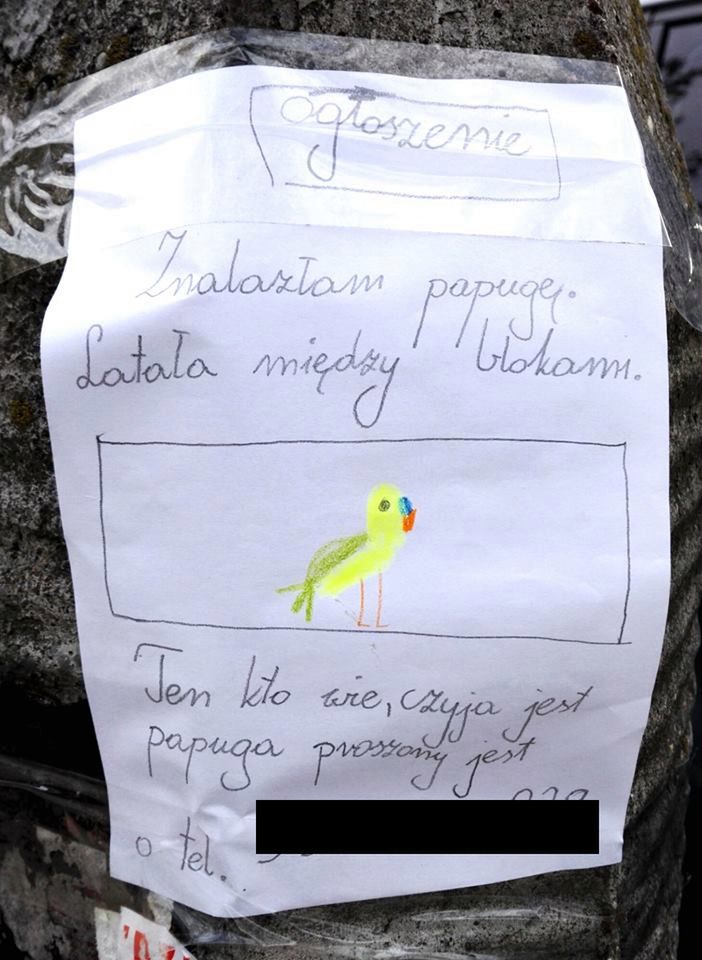 ogłoszenie
Znalazłam papugę.
Latała między blokami.
Ten kto wie, czyja jest
papuga proszony jest
o tel.